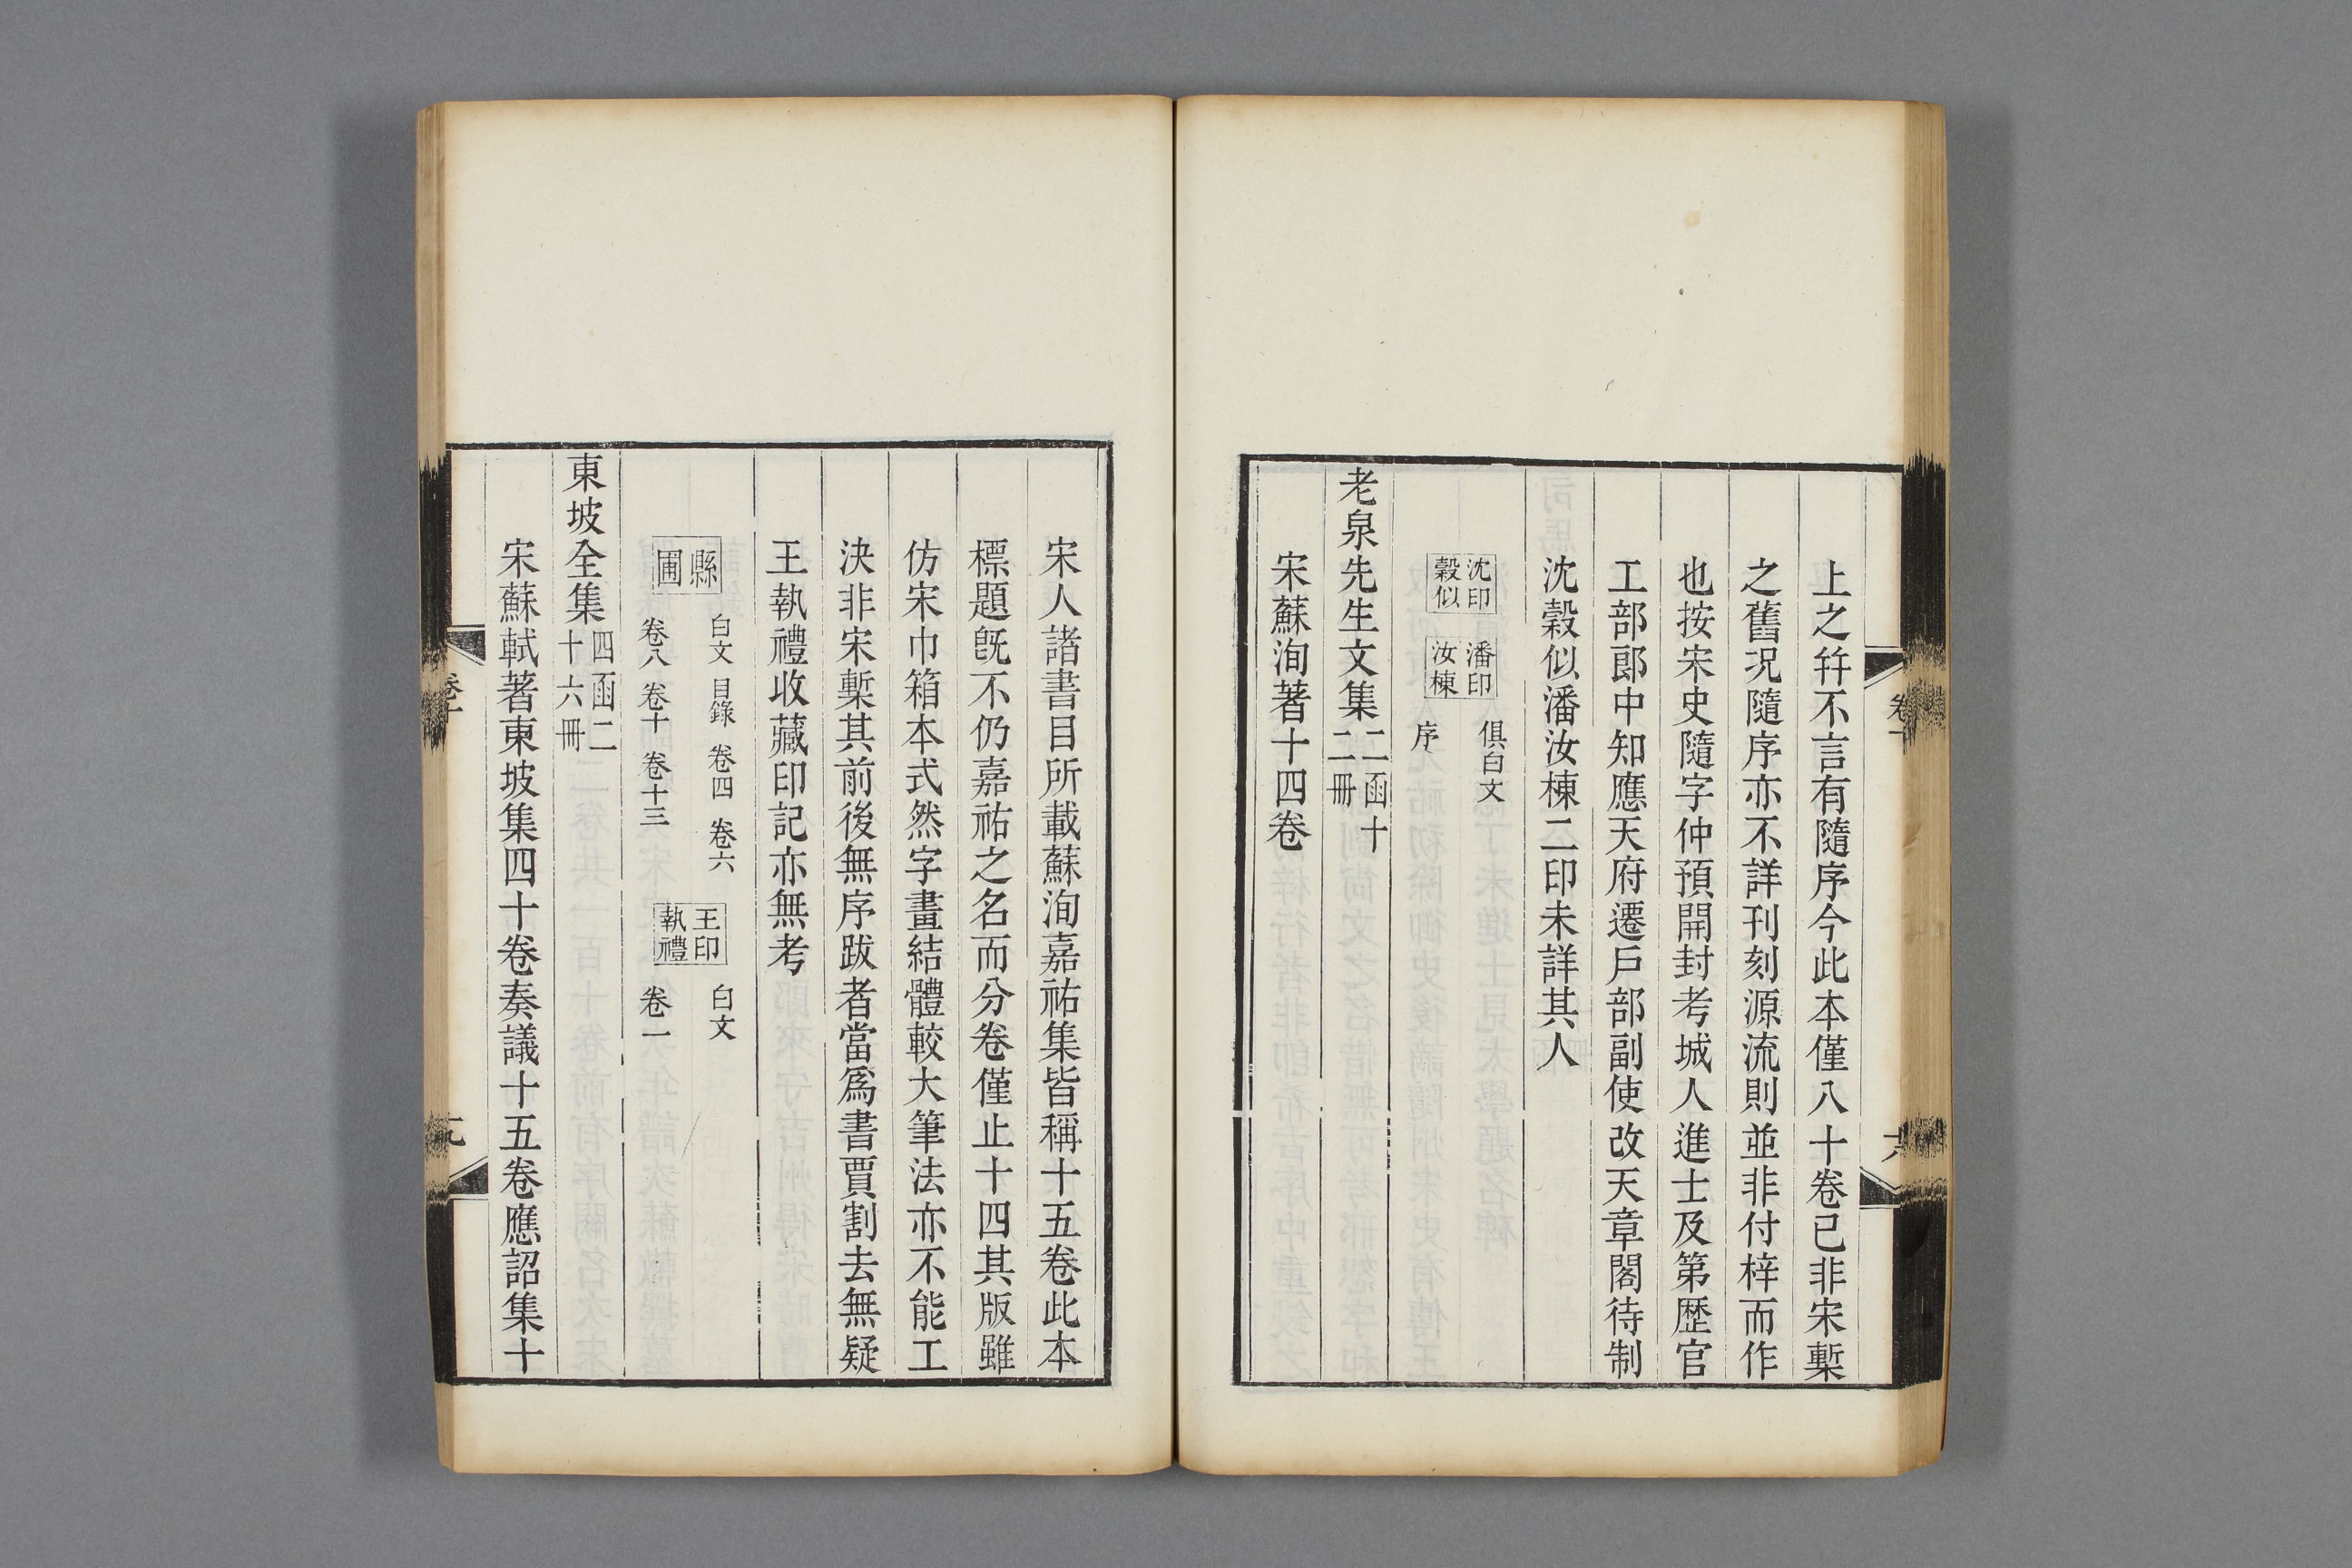 上之筓不言有隨序今此本僅八十卷已非宋槧
之舊况隨序亦不詳刊刻源流則並非付梓而作
也按宋史隨字仲預開封考城人進士及第歷官
工部郎中知應天府遷戶部副使改天章閣待制
沈穀似潘汝棟二印未詳其人
沈印穀似
潘印汝棟
俱白文
序
老泉先生文集二函十二冊
宋蘇洵著十四卷
宋人諸書目所載蘇洵嘉祐集皆稱十五卷此本
標題旣不仍嘉祐之名而分卷僅止十四其版雖
仿宋巾箱本式然字畫結體較大筆法亦不能工
決非宋槧其前後無序跋者當爲書賈割去無疑
王執禮收藏印記亦無考
縣圃
白文 目錄 卷四 卷六
卷八 卷十 卷十三
王印執禮
白文
卷一
東坡全集四函二十六冊
宋蘇軾著東坡集四十卷奏議十五卷應詔集十